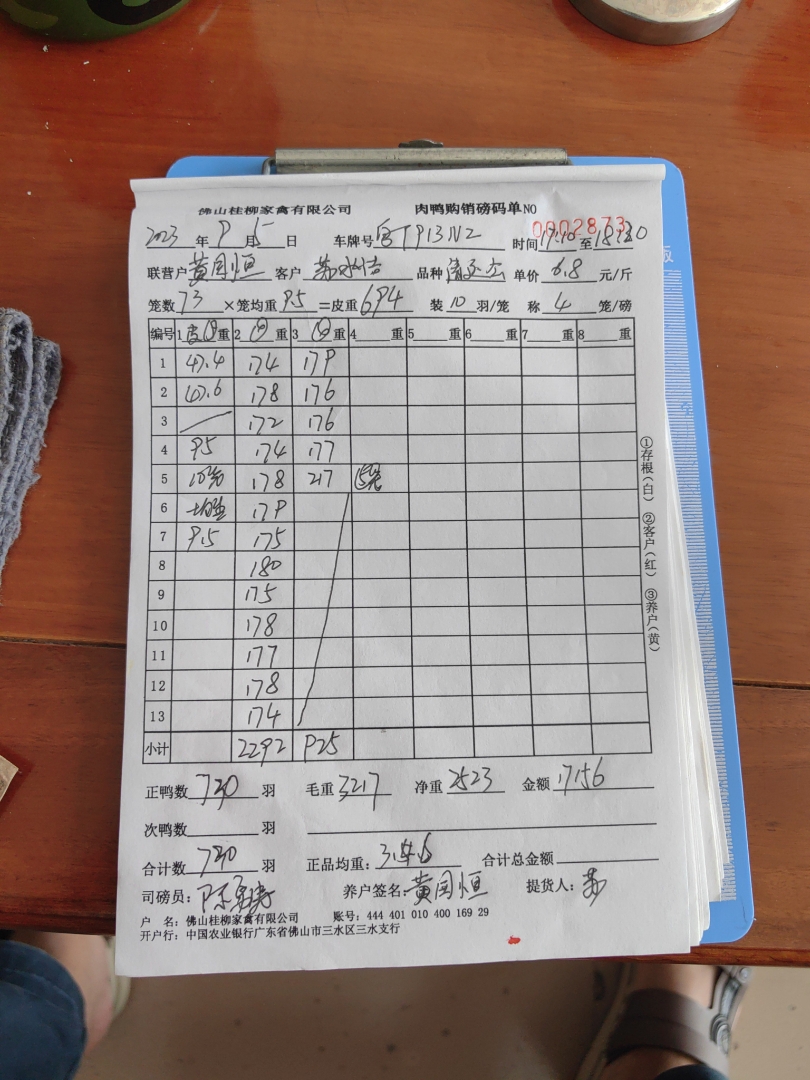 佛山桂柳家禽有限公司 肉鸭购销磅码单NO 0002873
2023年9月5日 车牌号 TP13N2 时间17:10至18:30
联营户黄国恒 客户 品种 单价6.8元/斤
笼数73×笼均重9.5=皮重694 装10羽/笼 称4笼/磅
编号 1皮重 2重 3重 4重 5重 6重 7重 8重
1 47.4 174 179
2 47.6 178 176
3 172 176
4 95 174 177
5 10笼 178 217 5笼
6 均重 179
7 9.5 175
8 180
9 175
10 178
11 177
12 178
13 174
小计 2292 925
正鸭数730羽 毛重3217 净重2523 金额17156
次鸭数羽
合计数730羽 正品均重: 合计总金额
司磅员: 养户签名:黄国恒 提货人:
户 名: 佛山桂柳家禽有限公司 账号: 444 401 010 400 169 29
开户行: 中国农业银行广东省佛山市三水区三水支行
①存根(白) ②客户(红) ③养户(黄)